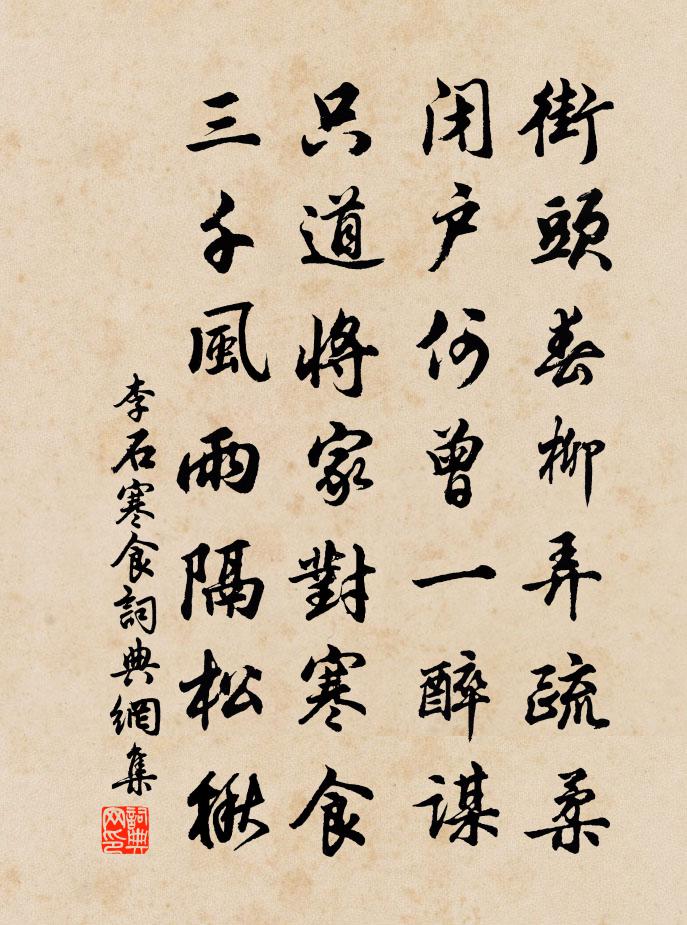 街頭春柳弄疏柔
閉户何曾一醉謀
只道將家對寒食
三千風雨隔松楸
李石寒食詞典網集
詞典网印